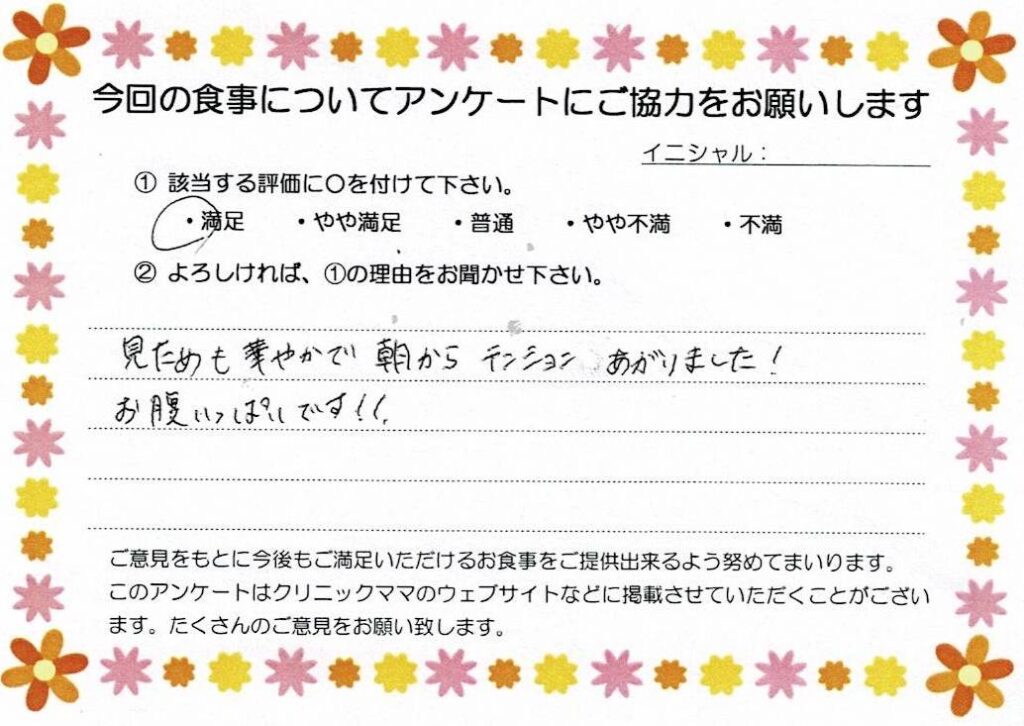 今回の食事についてアンケートにご協力をお願いします
イニシャル：
① 該当する評価に〇を付けて下さい。
・満足 ・やや満足 ・普通 ・やや不満 ・不満
② よろしければ、①の理由をお聞かせ下さい。
見ためも華やかで 朝から テンション あがりました！
お腹いっぱいです！！
ご意見をもとに今後もご満足いただけるお食事をご提供出来るよう努めてまいります。
このアンケートはクリニックママのウェブサイトなどに掲載させていただくことがござい
ます。たくさんのご意見をお願い致します。